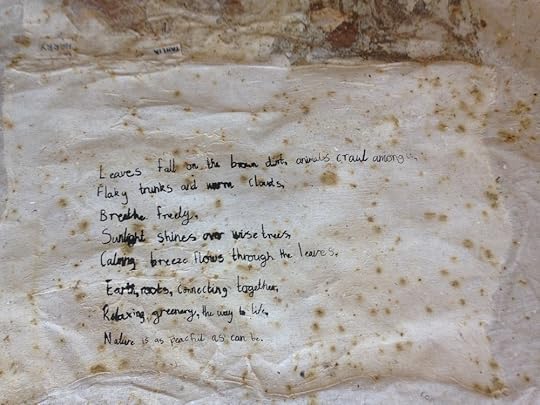 TAHLIA
Leaves fall on the brown dirt, animals crawl among it,
Flaky trunks and warm clouds,
Breathe freely.
Sunlight shines over wise trees
Calming breeze flows through the leaves,
Earth, roots, connecting together,
Relaxing, greenery, the way to life,
Nature is as peaceful as can be.